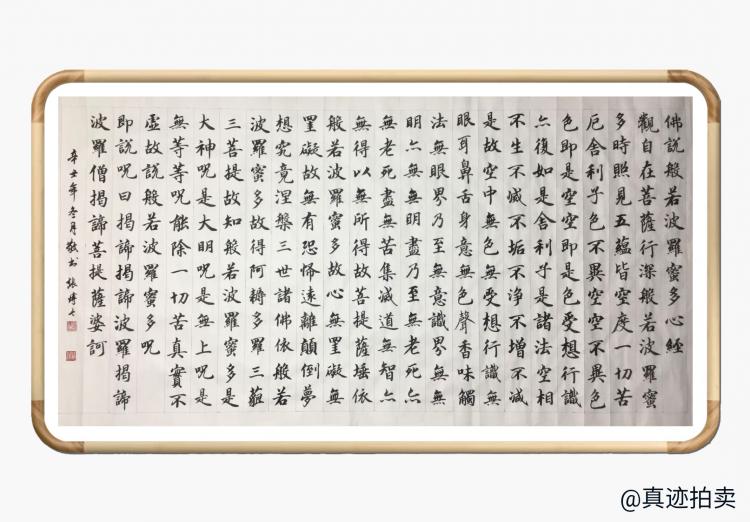 佛說般若波羅蜜多心經
觀自在菩薩行深般若波羅蜜
多時照見五蘊皆空度一切苦
厄舍利子色不異空空不異色
色即是空空即是色受想行識
亦復如是舍利子是諸法空相
不生不滅不垢不淨不增不減
是故空中無色無受想行識無
眼耳鼻舌身意無色聲香味觸
法無眼界乃至無意識界無無
明亦無無明盡乃至無老死亦
無老死盡無苦集滅道無智亦
無得以無所得故菩提薩埵依
般若波羅蜜多故心無罣礙無
罣礙故無有恐怖遠離顛倒夢
想究竟涅槃三世諸佛依般若
波羅蜜多故得阿耨多羅三藐
三菩提故知般若波羅蜜多是
大神呪是大明呪是無上呪是
無等等呪能除一切苦真實不
虛故說般若波羅蜜多呪
即說呪曰揭諦揭諦波羅揭諦
波羅僧揭諦菩提薩婆訶
辛丑年冬月敬书
@真迹拍卖